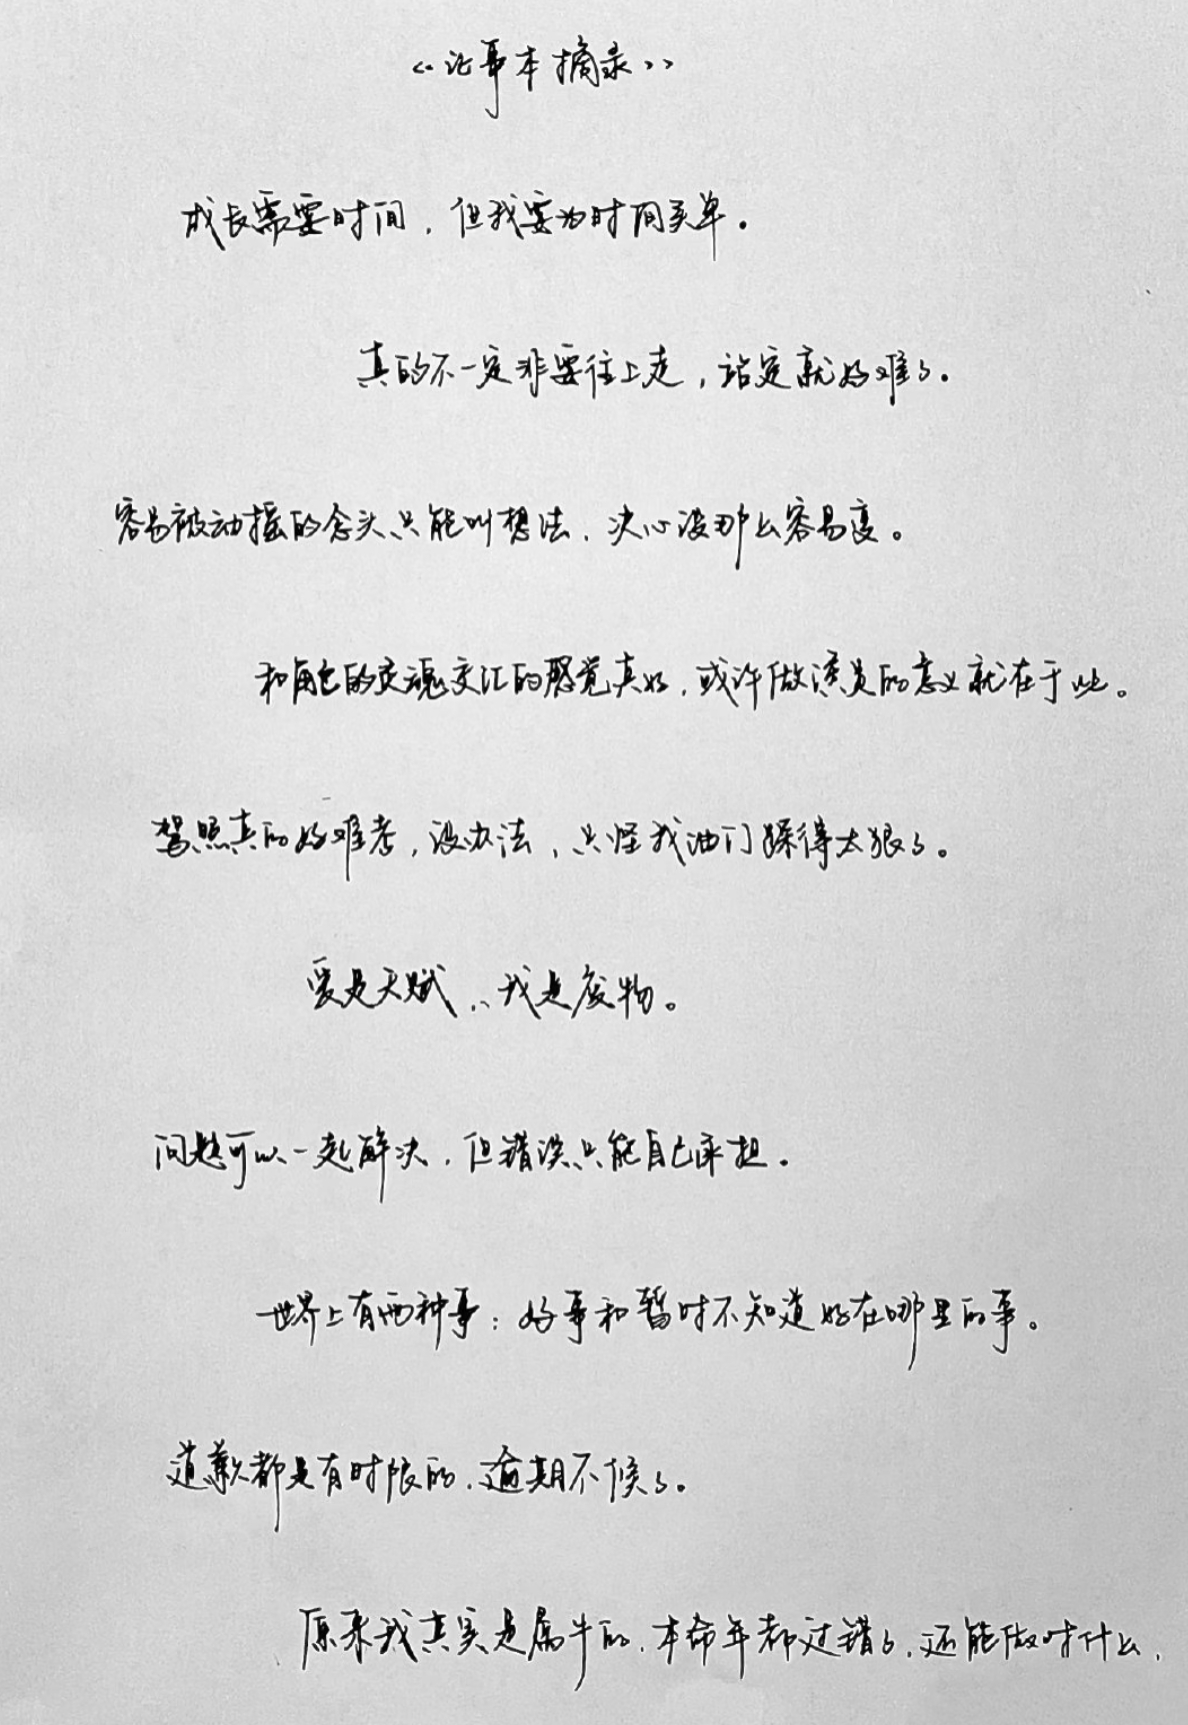 《记事本摘录》
成长需要时间,但我要为时间买单。
真的不一定非要往上走,站定就好难了。
容易被动摇的念头只能叫想法,决心没那么容易变。
和角色的灵魂交汇的感觉真好,或许做演员的意义就在于此。
驾照真的好难考,没办法,只怪我油门踩得太狠了。
爱是天赋,我是废物。
问题可以一起解决,但错误只能自己承担。
世界上有两种事:好事和暂时不知道好在哪里的事。
道歉都是有时限的,逾期不候了。
原来我真实是属牛的,本命年都过错了,还能做对什么,